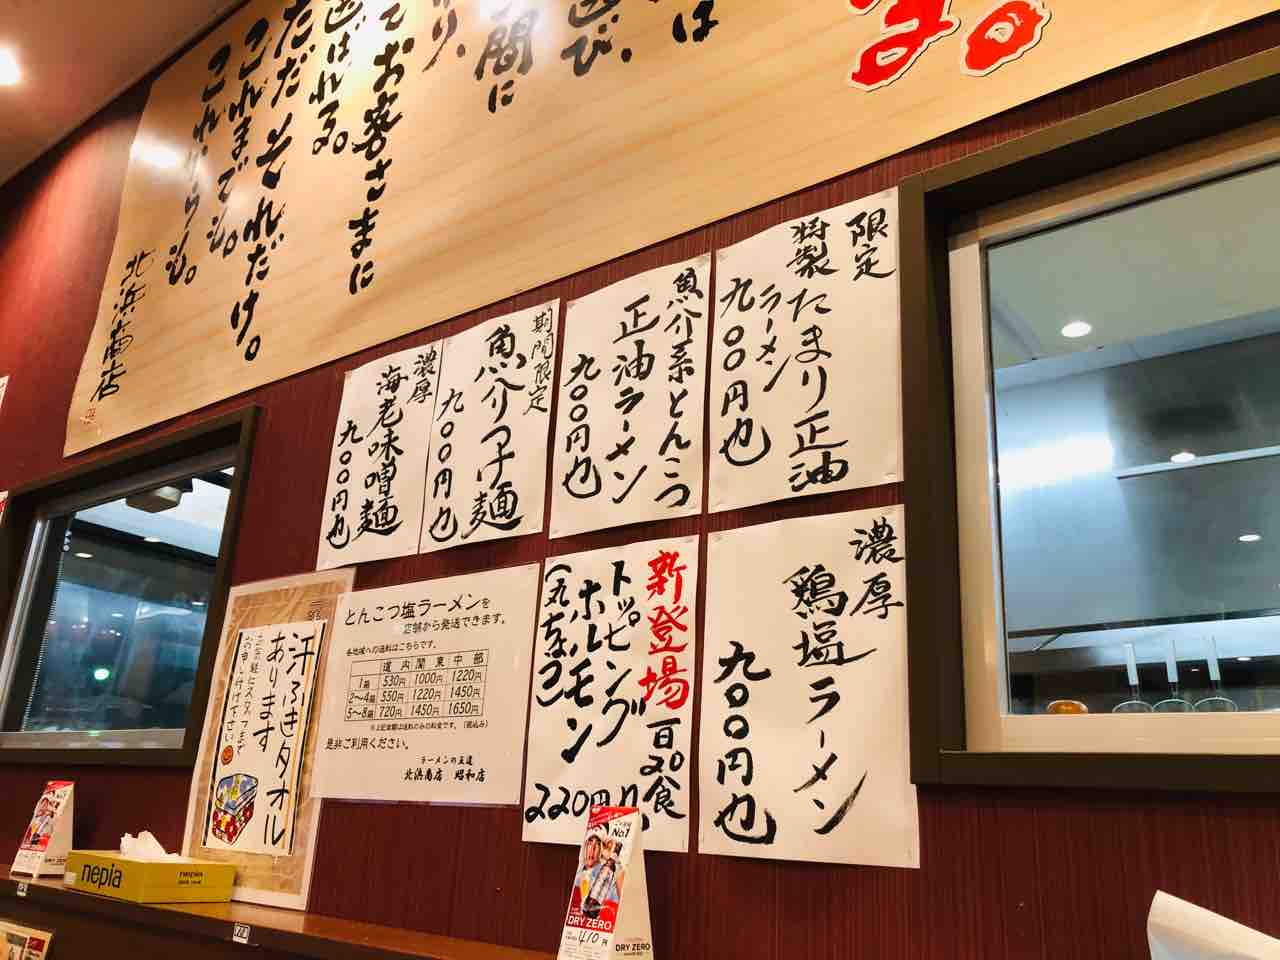 ま。
は
び、
間に
り、
てお客さまに
ばれる。
ただそれだけ。
これまでも。
これからも。
北浜商店
限定
特製たまり正油
ラーメン
九〇〇円也
魚介系とんこつ
正油ラーメン
九〇〇円也
期間限定
魚介つけ麺
九〇〇円也
濃厚
海老味噌麺
九〇〇円也
濃厚
鶏塩ラーメン
九〇〇円也
新登場
トッピング
ホルモン
(丸ちょう)
一日20食
220円
とんこつ塩ラーメンを
店舗から発送できます。
各地域への送料はこちらです。
道内 関東 中部
1箱 530円 1000円 1220円
2〜4箱 550円 1220円 1450円
5〜8箱 720円 1450円 1650円
※上記金額は送料のみの料金です。(税込み)
是非ご利用ください。
ラーメンの王道
北浜商店 昭和店
汗ふきタオル
あります
お気軽にスタッフまで
お申し付け下さい
nepia
nepia
No.1
DRY ZERO
410円
DRY ZERO